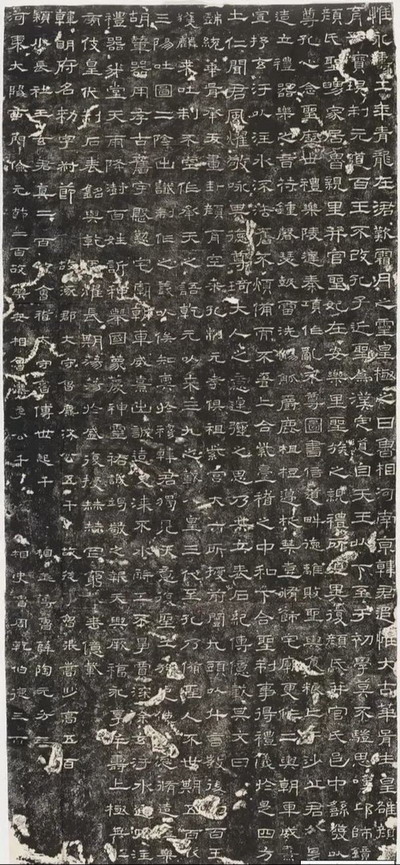 惟永壽二年青龍在涒歎霜月之靈皇極之日魯相河南京韓君追惟大古華胥生皇雄顏
育孔寶俱制元道百王不改孔子近聖為漢定道自天王以下至于初學莫不冏思嘆卬師鏡
顏氏聖舅家居魯親里并官聖妃在安樂里聖族之親禮所宜異復顏氏并官氏邑中繇發以
尊孔心念聖歷世禮樂陵遲秦項作亂不尊圖書倍道畔德離敗聖輿食糧亡于沙丘君於是
造立禮器樂之音苻鍾磬瑟鼓雷洗觴觚爵鹿柤梪籩柉禁壺脩飾宅廟更作二輿朝車威熹
宣抒玄汙以注水流法舊不煩備而不奢上合紫臺稽之中和下合聖制事得禮儀於是四方
士仁聞君風燿敬咏其德尊琦大人之意逴彌之思乃共立表石紀傳億載其文曰
戲統華胥承天畫卦顏育空桑孔制元孝俱祖紫宮大一所授前闓九頭以什言教後制百王
獲麟來吐制不空作承天之語乾元以來三九之載八皇三代至孔乃備聖人不世期五百載
三陽吐圖二陰出讖制作之義以俟知奧於穆韓君獨見天意復聖二族逴越絕思脩造禮樂
胡輦器用存古舊宇殷懃宅廟朝車威熹出誠造更漆不水解工不爭賈深除玄汙水通四注
禮器升堂天雨降澍百姓訢和舉國蒙慶神靈祐誠竭敬之報天與厥福永享牟壽上極華紫
旁伎皇代刊石表銘與乾運燿長期蕩蕩於盛復授赫赫罔窮聲垂億載
韓明府名勑字叔節 故涿郡大守魯麃次公五千 故從事魯張嵩眇高五百
潁川長社王玄君真二百 故會稽大守魯傅世起千 相主簿魯薛陶元方三百
河東大陽西門儉元節二百 故樂安相魯麃季公千 相史魯周乾伯德三百